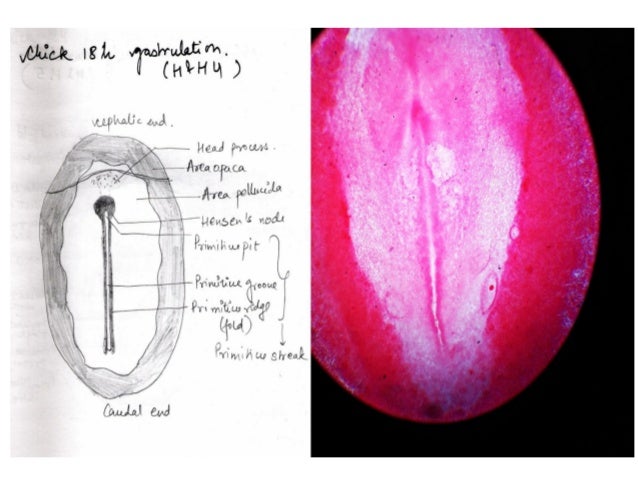 Chick 18h gastrulation.
(H&H4)
cephalic end.
Head process.
Area opaca
Area pellucida
Hensen's node
Primitive pit
Primitive groove
Primitive ridge
(fold)
Primitive streak
Caudal end